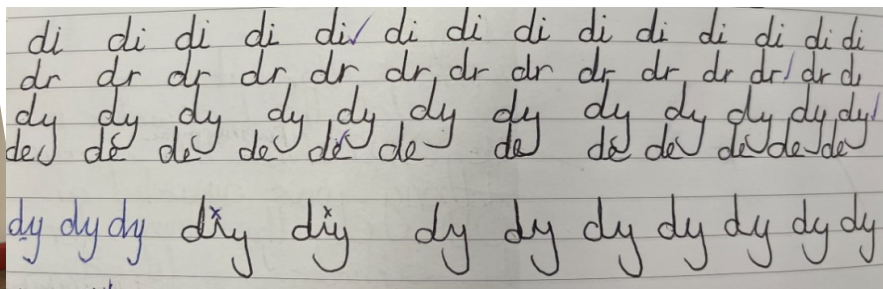 di di di di di di di di di di di di di di
dr dr dr dr dr dr dr dr dr dr dr dr dr d
dy dy dy dy dy dy dy dy dy dy dy dy
de de de de de de de de de de de de
dy dy dy diy diy dy dy dy dy dy dy dy